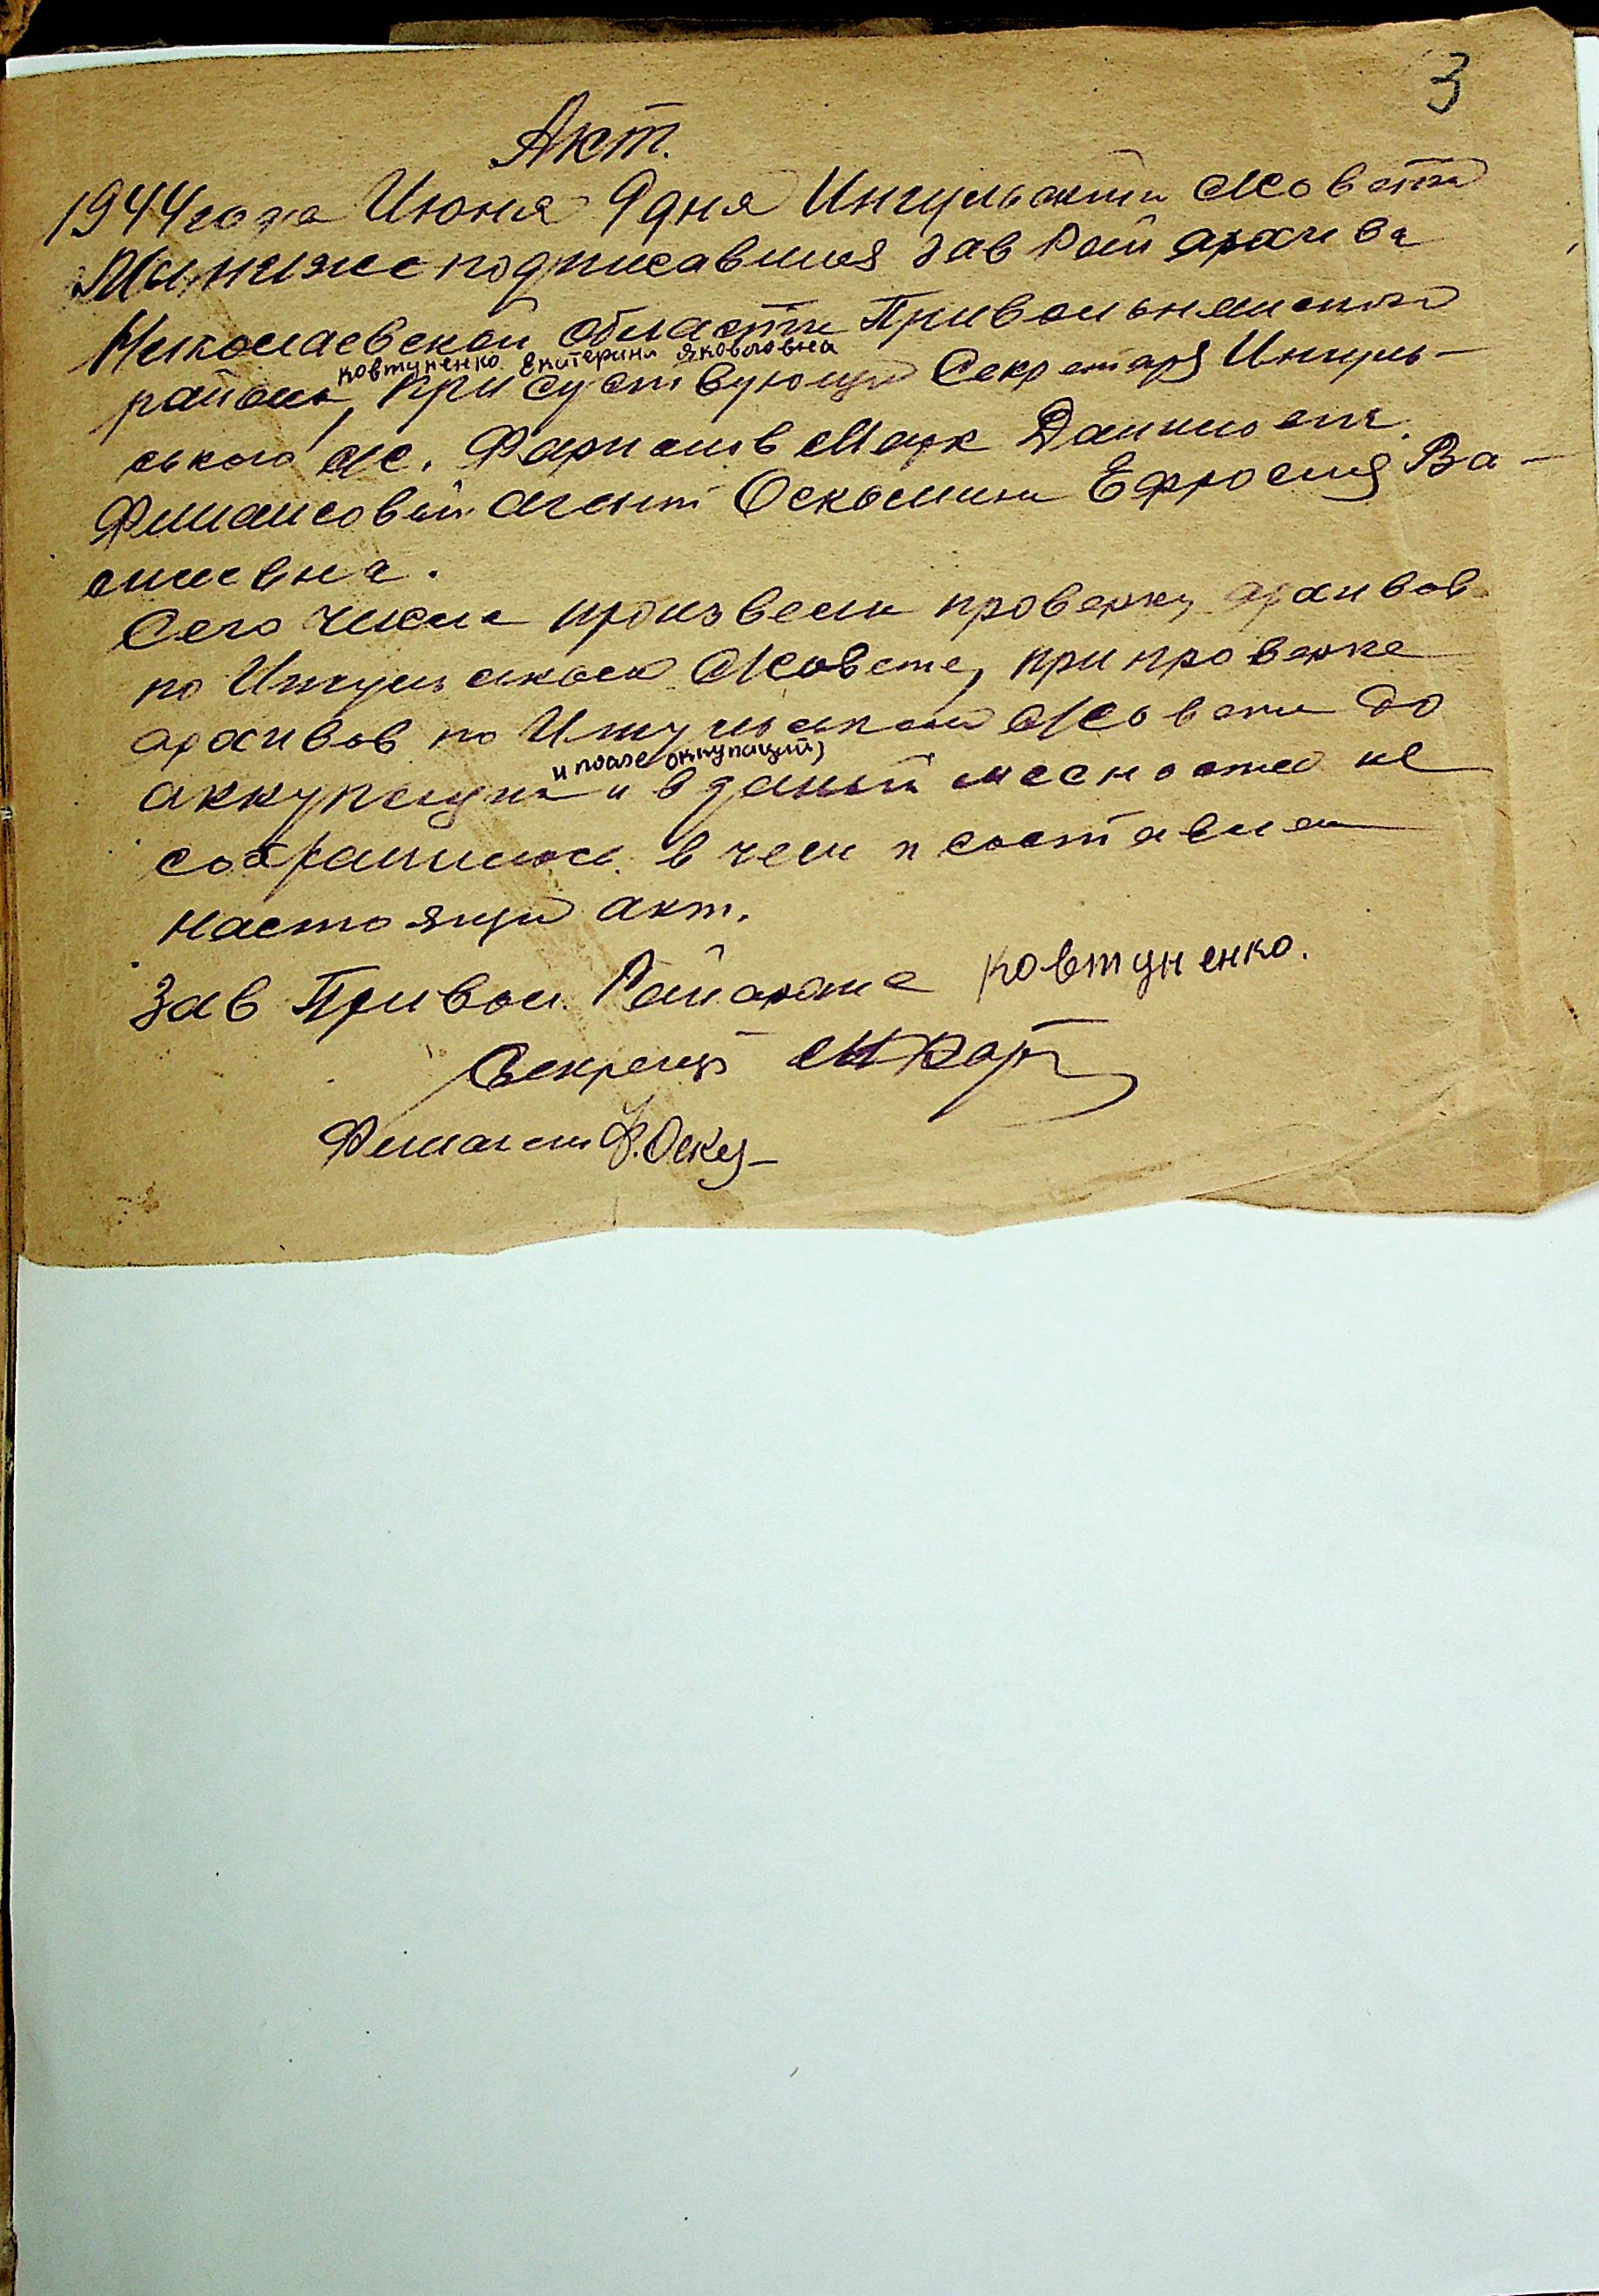 3
Акт.
1944 года Июня 9 дня Ингульский с/совет
Мы нижеподписавшися Зав Рай архива
Николаевской области Привольнянского
ковтуненко Екатерина Яковловна
района, присуствующи Секретаря Ингуль-
ського с/с. Марк Данилович
Финансовый агент Оскомина Ефросия Ва-
силевна.
Сего числа произвели проверку архивов
по Ингульском с/совете, при проверке
архивов по Ингульском с/совете до
и после оккупаций)
аккупации и в даный месности не
сохранилось в чем и составлен
настоящий акт.
Зав Привол. Райархива ковтуненко.
Секретар
Финагент